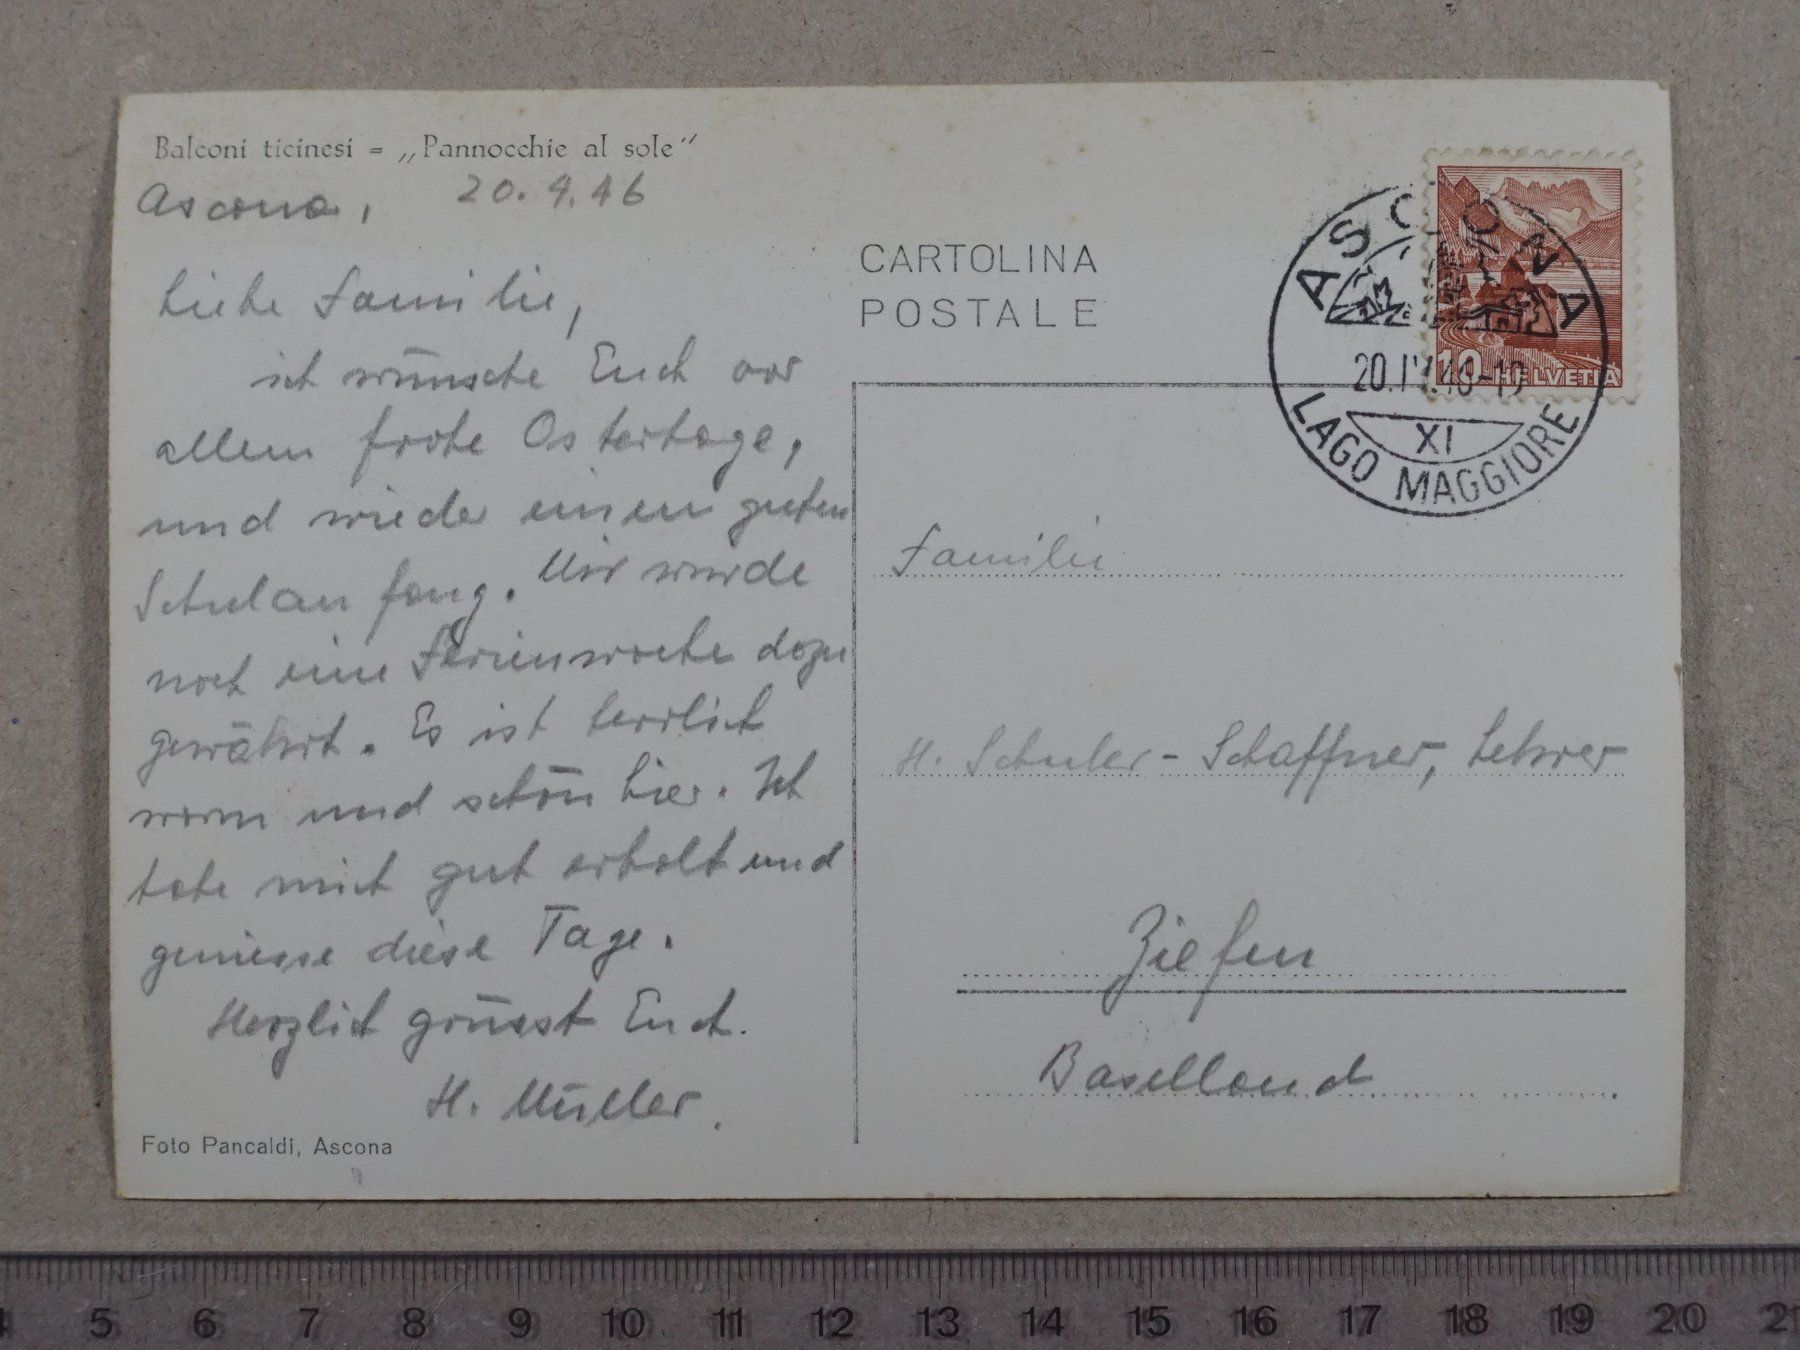 Balconi ticinesi = „Pannocchie al sole"
Ascona, 20.4.46
Liebe Familie,
ich wünsche Euch vor
allem frohe Ostertage,
und wieder einen guten
Schulanfang. Mir wurde
noch eine Ferienwoche dazu
gewährt. Es ist herrlich
warm und schön hier. Ich
habe mich gut erholt und
geniesse diese Tage.
Herzlich grüsst Euch.
H. Müller.
Foto Pancaldi, Ascona
CARTOLINA
POSTALE
ASCONA
20.IV.46-19
XI
LAGO MAGGIORE
10 HELVETIA
Familie
H. Schuler-Schaffner, Lehrer
Ziefen
Baselland
4 5 6 7 8 9 10 11 12 13 14 15 16 17 18 19 20 21